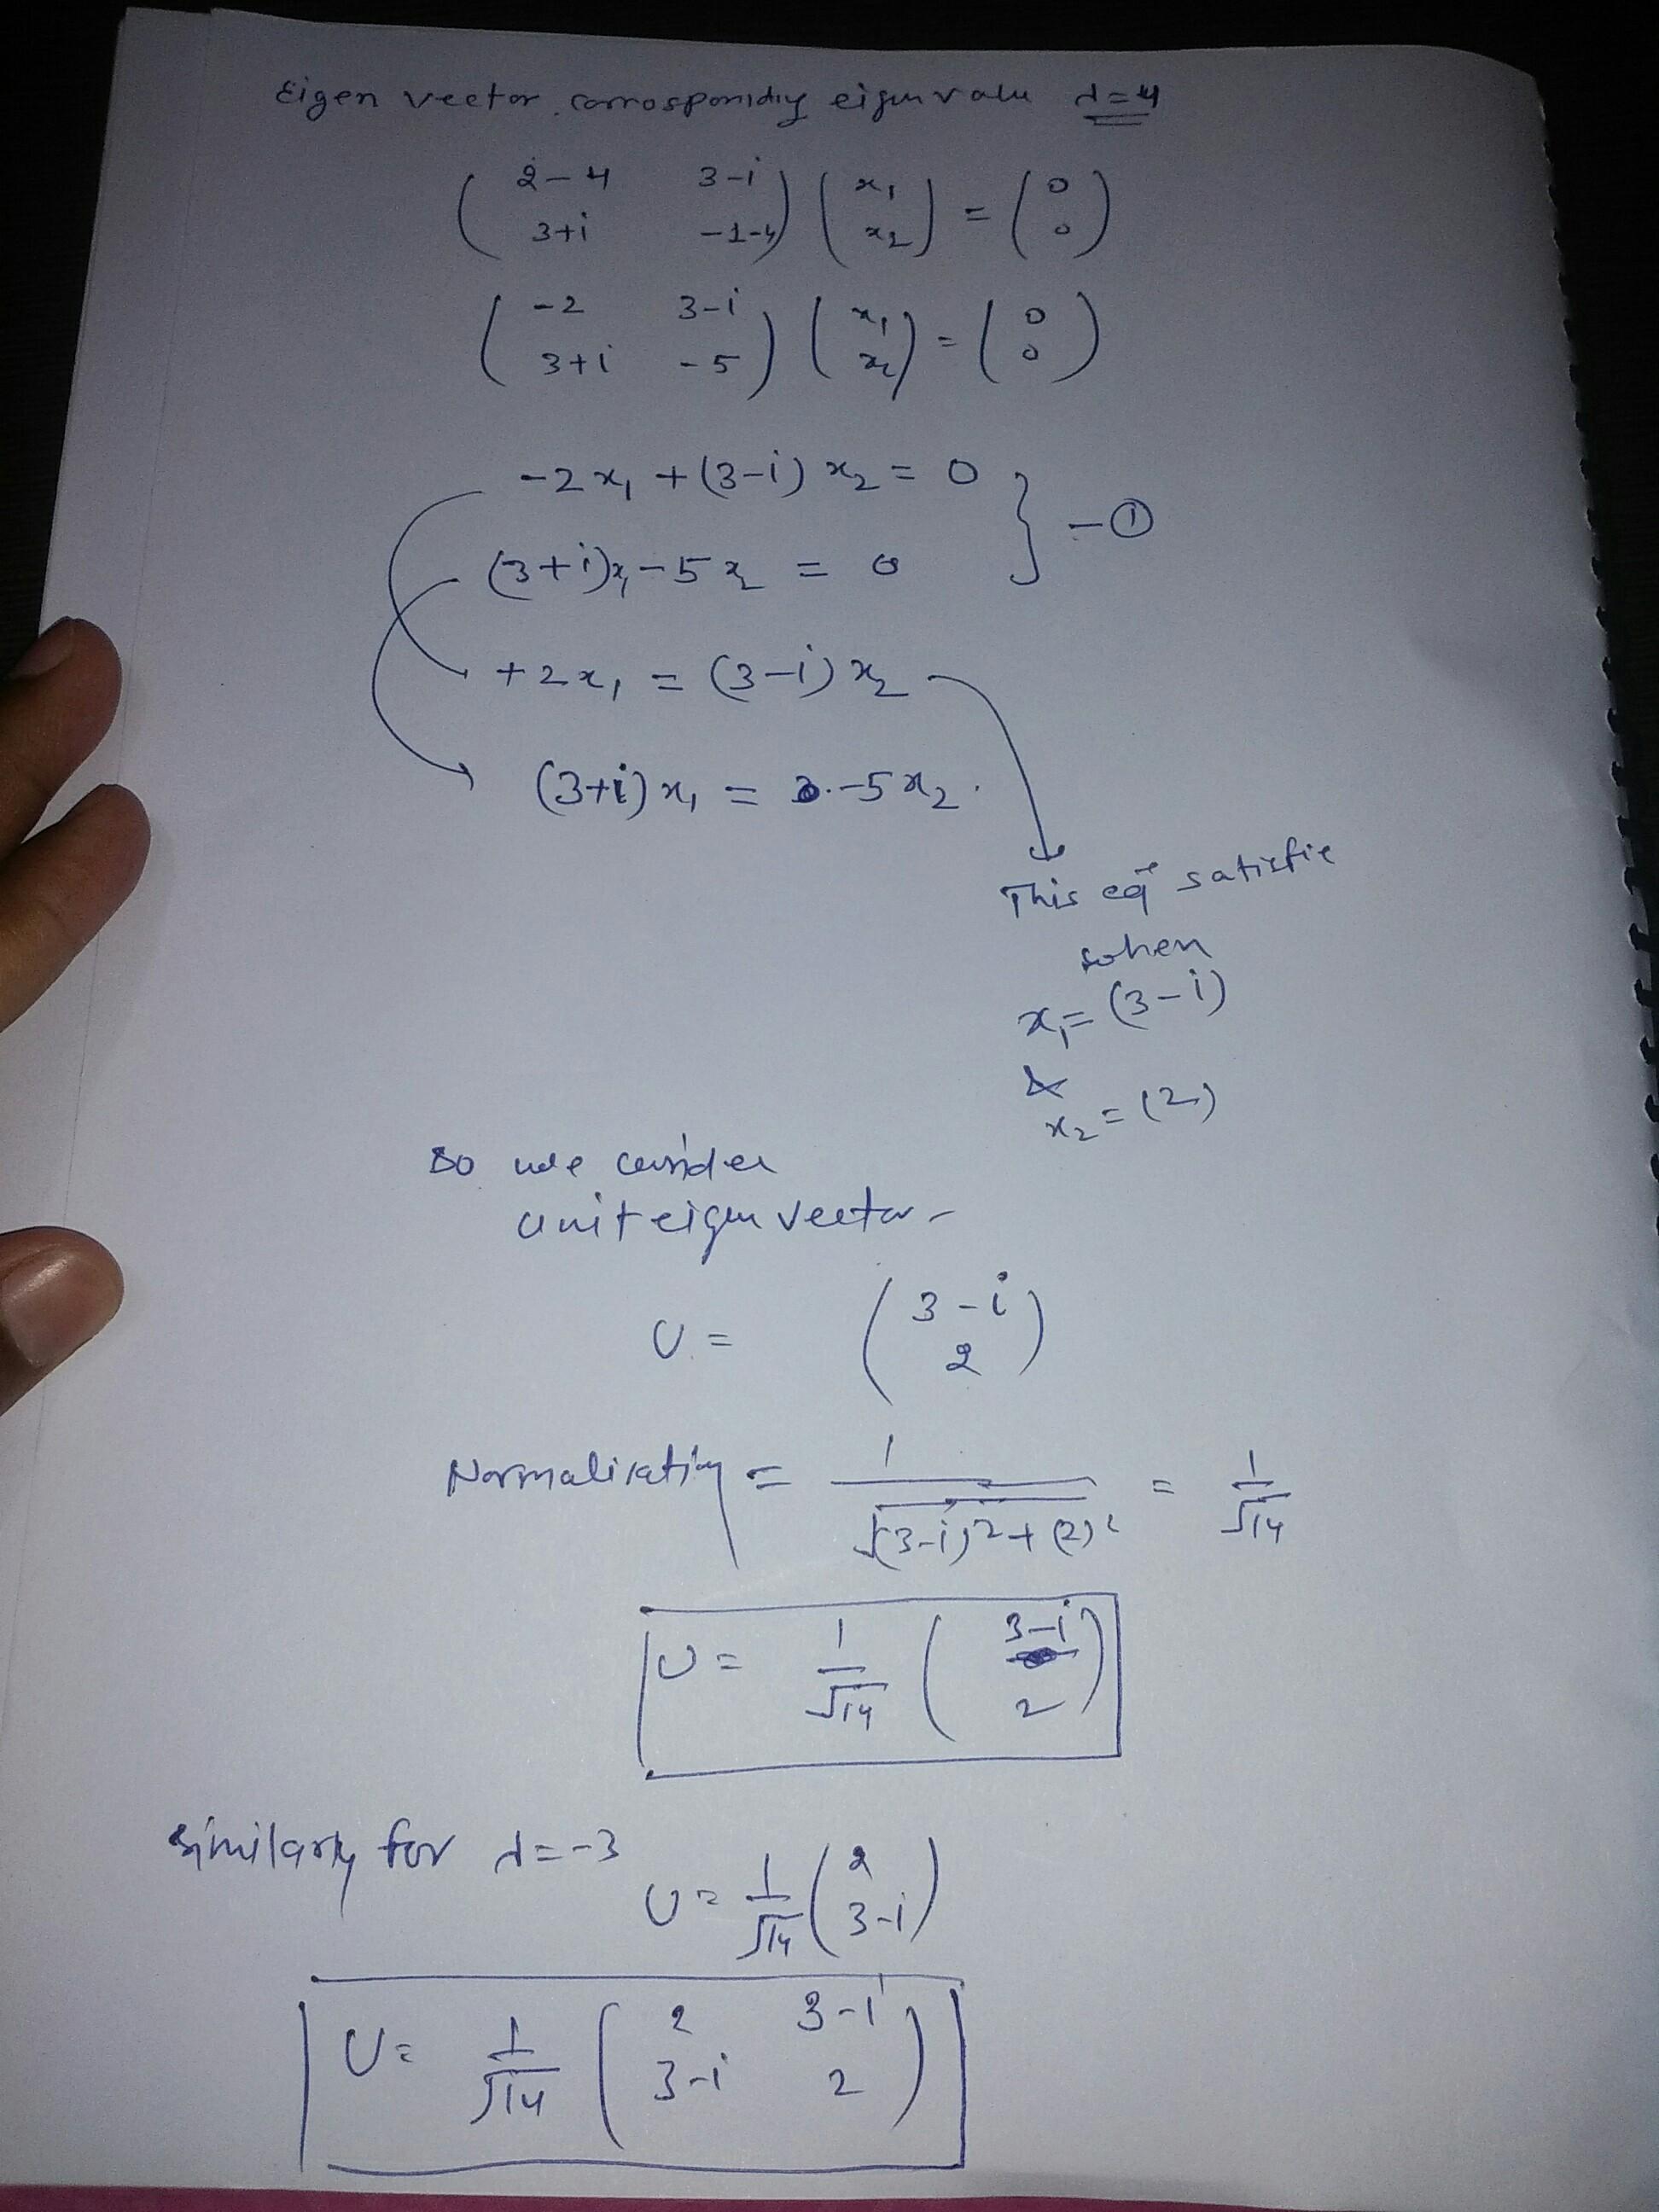 Eigen vector corrosponidiy eigenvalu λ=4
( 2-4 3-i
3+i -1-4 ) ( x₁
x₂ ) = ( 0
0 )
( -2 3-i
3+i -5 ) ( x₁
x₂ ) = ( 0
0 )
-2x₁ + (3-i) x₂ = 0
(3+i)x₁ - 5x₂ = 0 } - ①
+2x₁ = (3-i) x₂
(3+i) x₁ = -5x₂.
This eqⁿ satisfie
when
x₁ = (3-i)
&
x₂ = (2)
so we consider
unit eigen vector -
U = ( 3-i
2 )
Normalization = 1 / √(3-i)²+(2)² = 1/√14
U = 1/√14 ( 3-i
2 )
similarly for λ=-3
U = 1/√14 ( 2
3-i )
U = 1/√14 ( 2 3-i
3-i 2 )